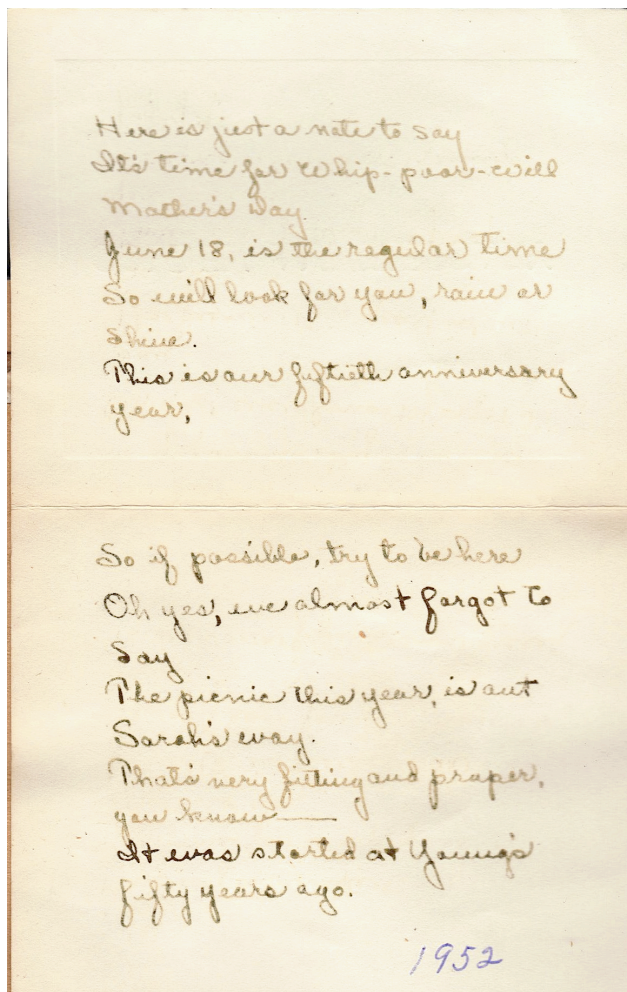 Here is just a note to say
It's time for Whip-poor-will
Mother's Day
June 18, is the regular time
So will look for you, rain or
shine.
This is our fiftieth anniversary
year,
So if possible, try to be here
Oh yes, we almost forgot to
say
The picnic this year, is out
Sarah's way.
That's very fitting and proper,
you know——
It was started at Young's
fifty years ago.
1952